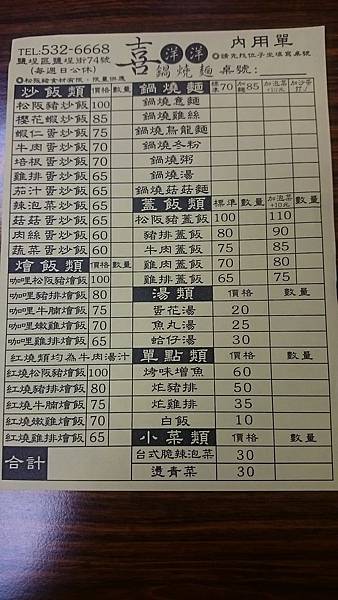 TEL:532-6668
鹽埕區鹽埕街74號
(每週日公休)
◎松阪豬食材有限、限量供應
喜洋洋
鍋燒麵
內用單
◎請先找位子坐填寫桌號
桌號:
炒飯類 價格 數量
松阪豬蛋炒飯 100
櫻花蝦炒飯 80
蝦仁蛋炒飯 70
牛肉蛋炒飯 70
培根蛋炒飯 70
雞排蛋炒飯 65
茄汁蛋炒飯 65
辣泡菜炒飯 65
菇菇蛋炒飯 65
肉絲蛋炒飯 60
蔬菜蛋炒飯 60
燴飯類 價格 數量
咖哩松阪豬燴飯 100
咖哩豬排燴飯 80
咖哩牛腩燴飯 75
咖哩嫩雞燴飯 70
咖哩雞排燴飯 65
紅燒類均為牛肉湯汁
紅燒松阪豬燴飯 100
紅燒豬排燴飯 80
紅燒牛腩燴飯 75
紅燒嫩雞燴飯 70
紅燒雞排燴飯 65
合計
鍋燒麵 標準70 加麵85 加泡菜+10元 加沙茶打✓
鍋燒意麵
鍋燒雞絲
鍋燒烏龍麵
鍋燒冬粉
鍋燒粥
鍋燒湯
鍋燒菇菇麵
蓋飯類 標準 數量 加泡菜+10元 數量
松阪豬蓋飯 100 110
豬排蓋飯 80 90
牛肉蓋飯 75 85
雞肉蓋飯 70 80
雞排蓋飯 65 75
湯類 價格 數量
蛋花湯 20
魚丸湯 25
蛤仔湯 30
單點類 價格 數量
烤味增魚 60
炸豬排 50
炸雞排 35
白飯 10
小菜類 價格 數量
台式脆辣泡菜 30
燙青菜 30